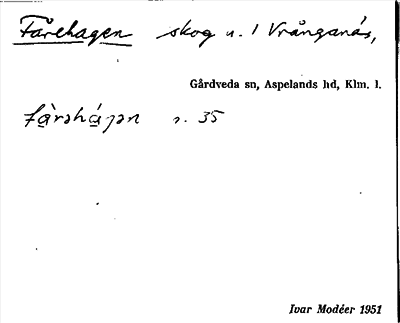 Fårehagen skog n. 1 Vrånganäs,
Gårdveda sn, Aspelands hd, Klm. l.
s. 35
Ivar Modéer 1951